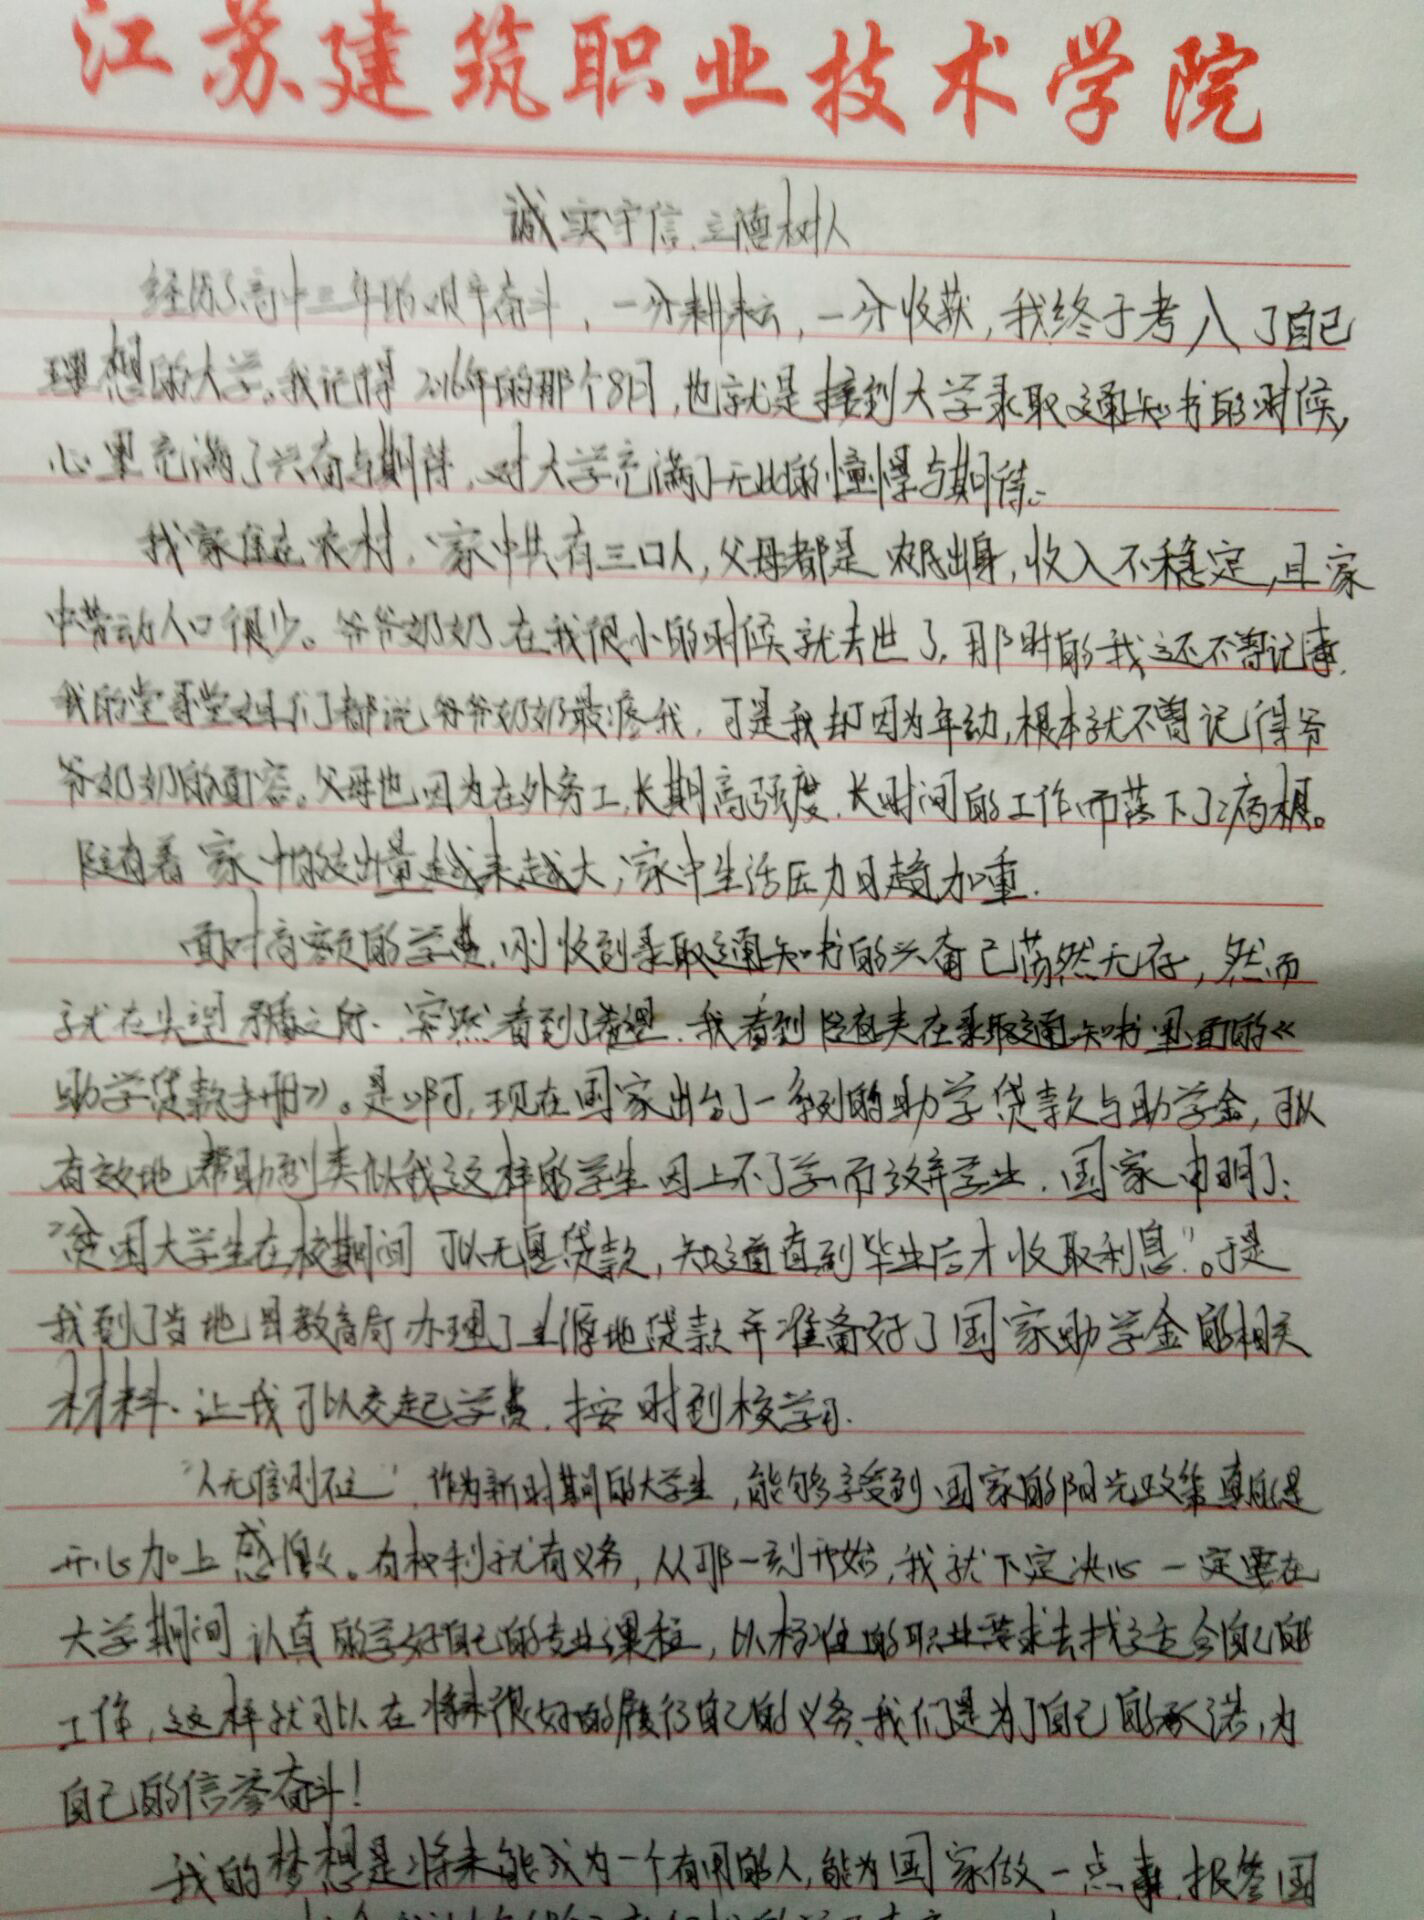 江苏建筑职业技术学院
诚实守信，立德树人
经历了高中三年的艰辛奋斗，一分耕耘，一分收获，我终于考入了自己
理想的大学。我记得2016年的那个8月，也就是接到大学录取通知书的时候，
心里充满了兴奋与期待，对大学充满了无比的憧憬与期待。
我家住在农村，家中共有三口人，父母都是农民出身，收入不稳定，且家
中劳动人口很少。爷爷奶奶在我很小的时候就去世了，那时的我还不曾记事，
我的堂哥堂姐们都说爷爷奶奶最疼我，可是我却因为年幼，根本就不曾记得爷
爷奶奶的面容。父母也因为在外务工，长期高强度，长时间的工作而落下了病根。
随着家中的支出量越来越大，家中生活压力日趋加重．
面对高额的学费，刚收到录取通知书的兴奋已荡然无存，然而
就在失望之际，突然看到了希望，我看到随夹在录取通知书里面的《
助学贷款手册》。是啊，现在国家出台了一系列的助学贷款与助学金，可以
有效地帮助到类似我这样的学生因上不了学而放弃学业．国家申明了：
"贫困大学生在校期间可以无息贷款，知道直到毕业后才收取利息"。于是
我到了当地县教育局办理了生源地贷款并准备好了国家助学金的相关
材料．让我可以交起学费，按时到校学习．
"人无信则不立"，作为新时期间的大学生，能够享受到国家的阳光政策真的是
开心加上感激。有权利就有义务，从那一刻开始，我就下定决心一定要在
大学期间认真的学好自己的专业课程，以标准的职业要求去找适合自己的
工作，这样就可以在将来很好的履行自己的义务，我们是为了自己的承诺，为
自己的信誉奋斗！
我的梦想是将来能成为一个有用的人，能为国家做一点事，报答国